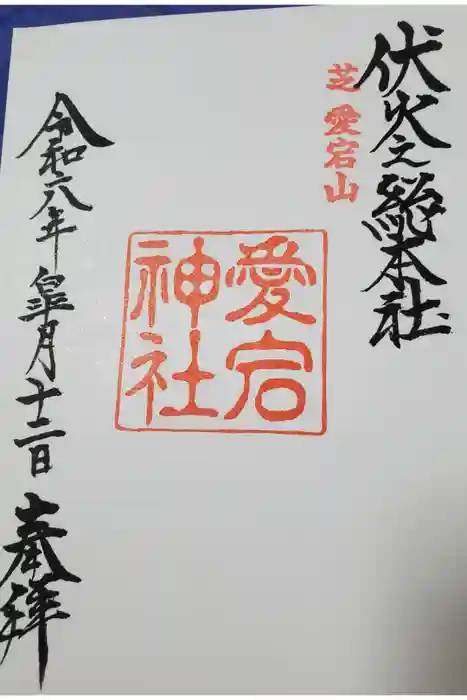 伏火之総本社
芝 愛宕山
愛宕
神社
令和八年 皐月 十二日 奉拝